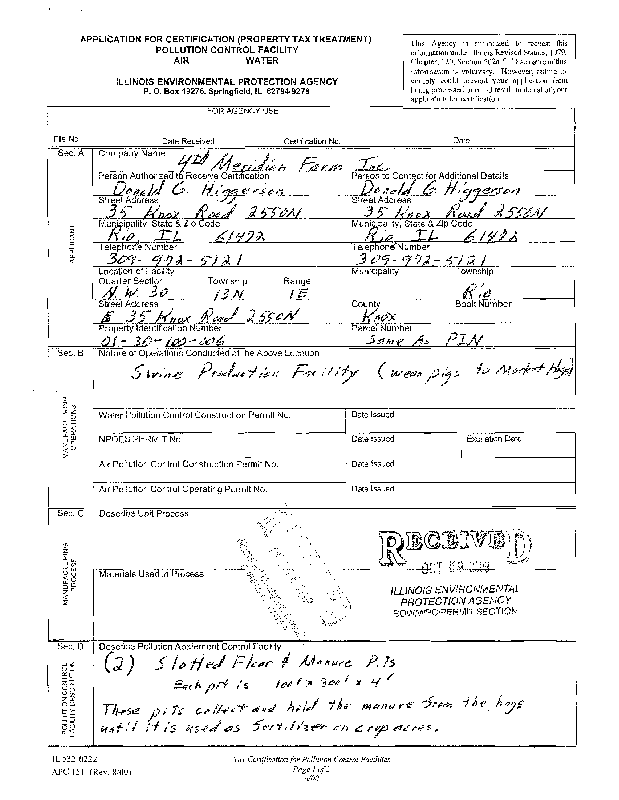 APPLICATION FOR CERTIFICATION (PROPERTY TAX TREATMENT)
POLLUTION CONTROL FACILITY
AIR WATER
ILLINOIS ENVIRONMENTAL PROTECTION AGENCY
P. O. Box 19276, Springfield, IL 62794-9276
This Agency is authorized to request this
information under Illinois Revised Statutes, 1979,
Chapter 120, Section 502a-5. Disclosure of this
information is voluntary. However, failure to
comply could prevent your application from
being processed or could result in denial of your
application for certification.
FOR AGENCY USE
File No. Date Received Certification No. Date
Sec. A Company Name
4th Meridian Farm Inc.
Person Authorized to Receive Certification Person to Contact for Additional Details
Donald G. Higgerson Donald G Higgerson
Street Address Street Address
35 Knox Road 2550N 35 Knox Road 2550N
Municipality, State & Zip Code Municipality, State & Zip Code
Rio, IL 61472 Rio, IL 61472
Telephone Number Telephone Number
309-972-5121 309-972-5121
APPLICANT
Location of Facility Municipality Township
Quarter Section Township Range
N.W. 30 13N 1E Rio
Street Address County Book Number
35 Knox Road 2550N Knox
Property Identification Number Parcel Number
01-30-100-006 Same As PIN
Sec. B Nature of Operations Conducted at The Above Location
Swine Production Facility (wean pigs to Market Hogs)
MANUFACTURING
OPERATIONS
Water Pollution Control Construction Permit No. Date Issued
NPDES PERMIT No. Date Issued Expiration Date
Air Pollution Control Construction Permit No. Date Issued
Air Pollution Control Operating Permit No. Date Issued
Sec. C Describe Unit Process
MANUFACTURING
PROCESS
RECEIVED
OCT
Materials Used in Process
ILLINOIS ENVIRONMENTAL
PROTECTION AGENCY
BOW/WPC/PERMIT SECTION
Sec. D Describe Pollution Abatement Control Facility
(2) Slotted Floor & Manure Pits
Each pit is 100' x 300' x 4'
These pits collect and hold the manure from the hogs
until it is used as fertilizer on crop acres.
POLLUTION CONTROL
FACILITY DESCRIPTION
IL 532-0222 Tax Certification for Pollution Control Facilities
APC 151 (Rev. 8/00) Page 1 of 2